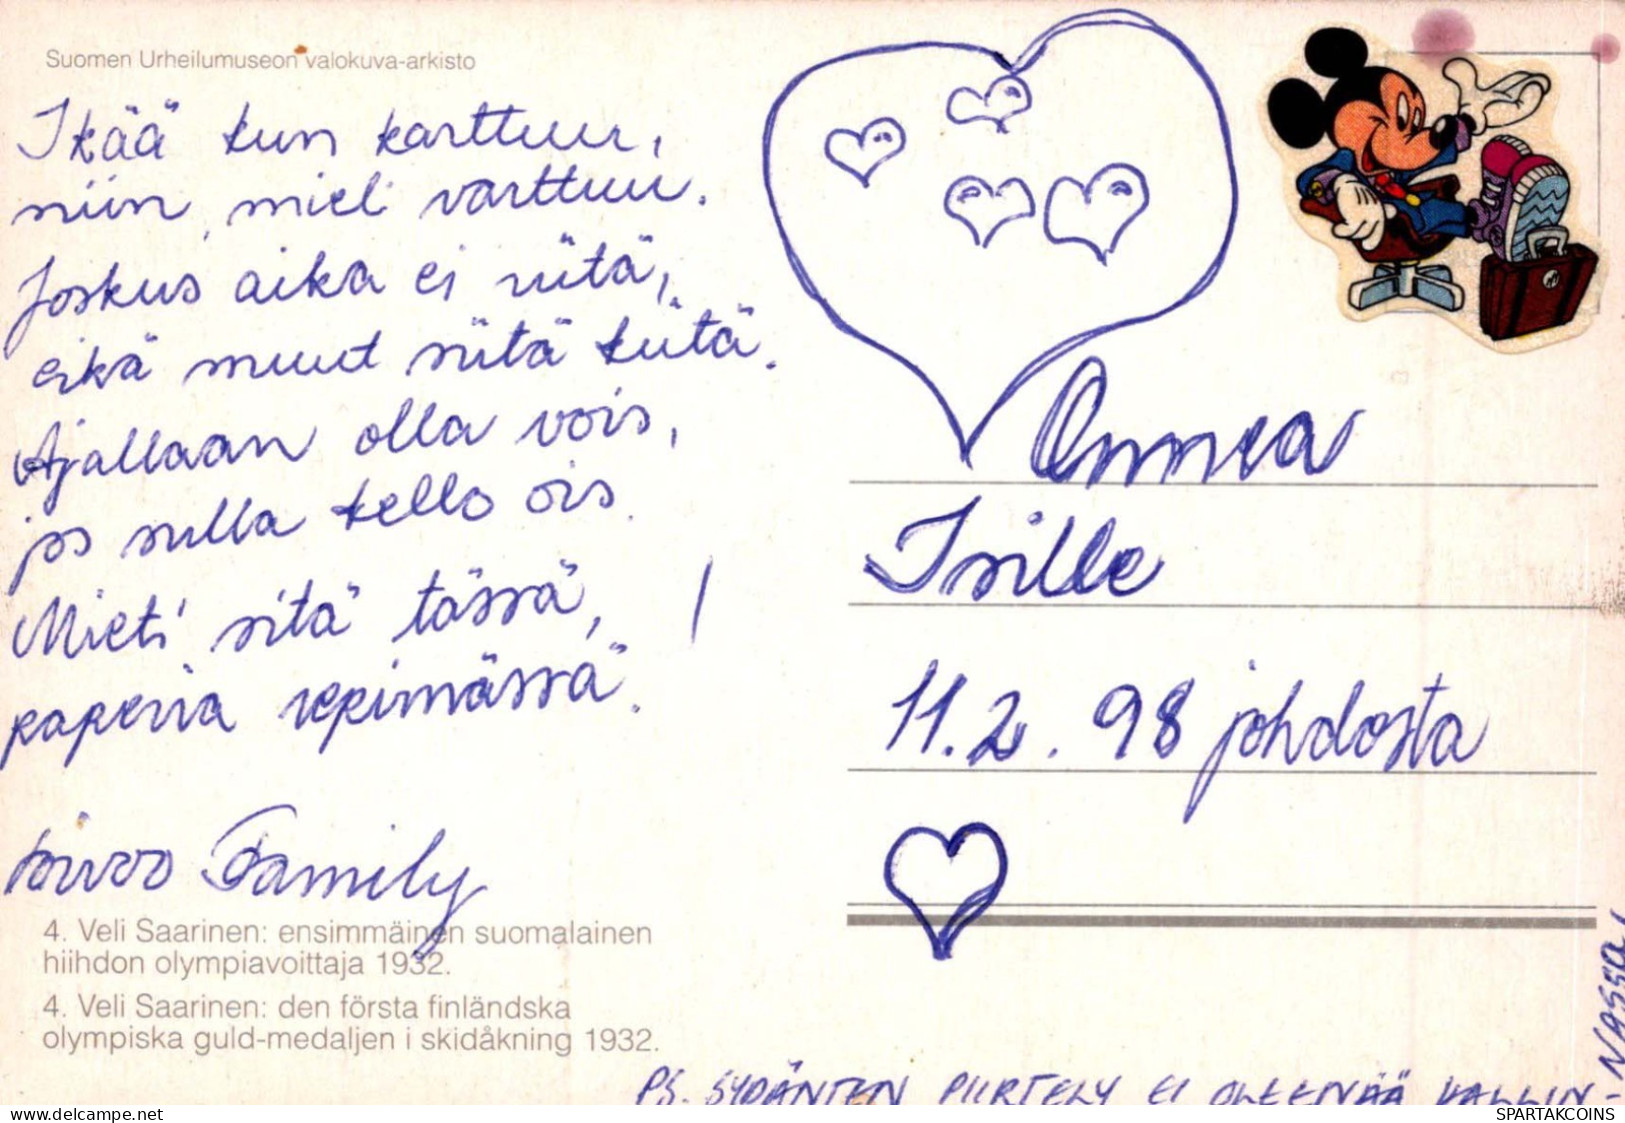 Suomen Urheilumuseon valokuva-arkisto
Ikää kun karttuu,
niin mieli varttuu.
Joskus aika ei riitä,
eikä muut siitä kiitä.
Ajallaan olla vois,
jos sulla kello ois.
Mieti sitä tässä, !
paperia repimässä.
Family
4. Veli Saarinen: ensimmäinen suomalainen
hiihdon olympiavoittaja 1932.
4. Veli Saarinen: den första finländska
olympiska guld-medaljen i skidåkning 1932.
Onnea
Isille
11.2.98 johdosta
PS. SYDÄNTEN PIIRTELY EI OLE ENÄÄ HALLIN-
NASSA!
SPARTAKCOINS